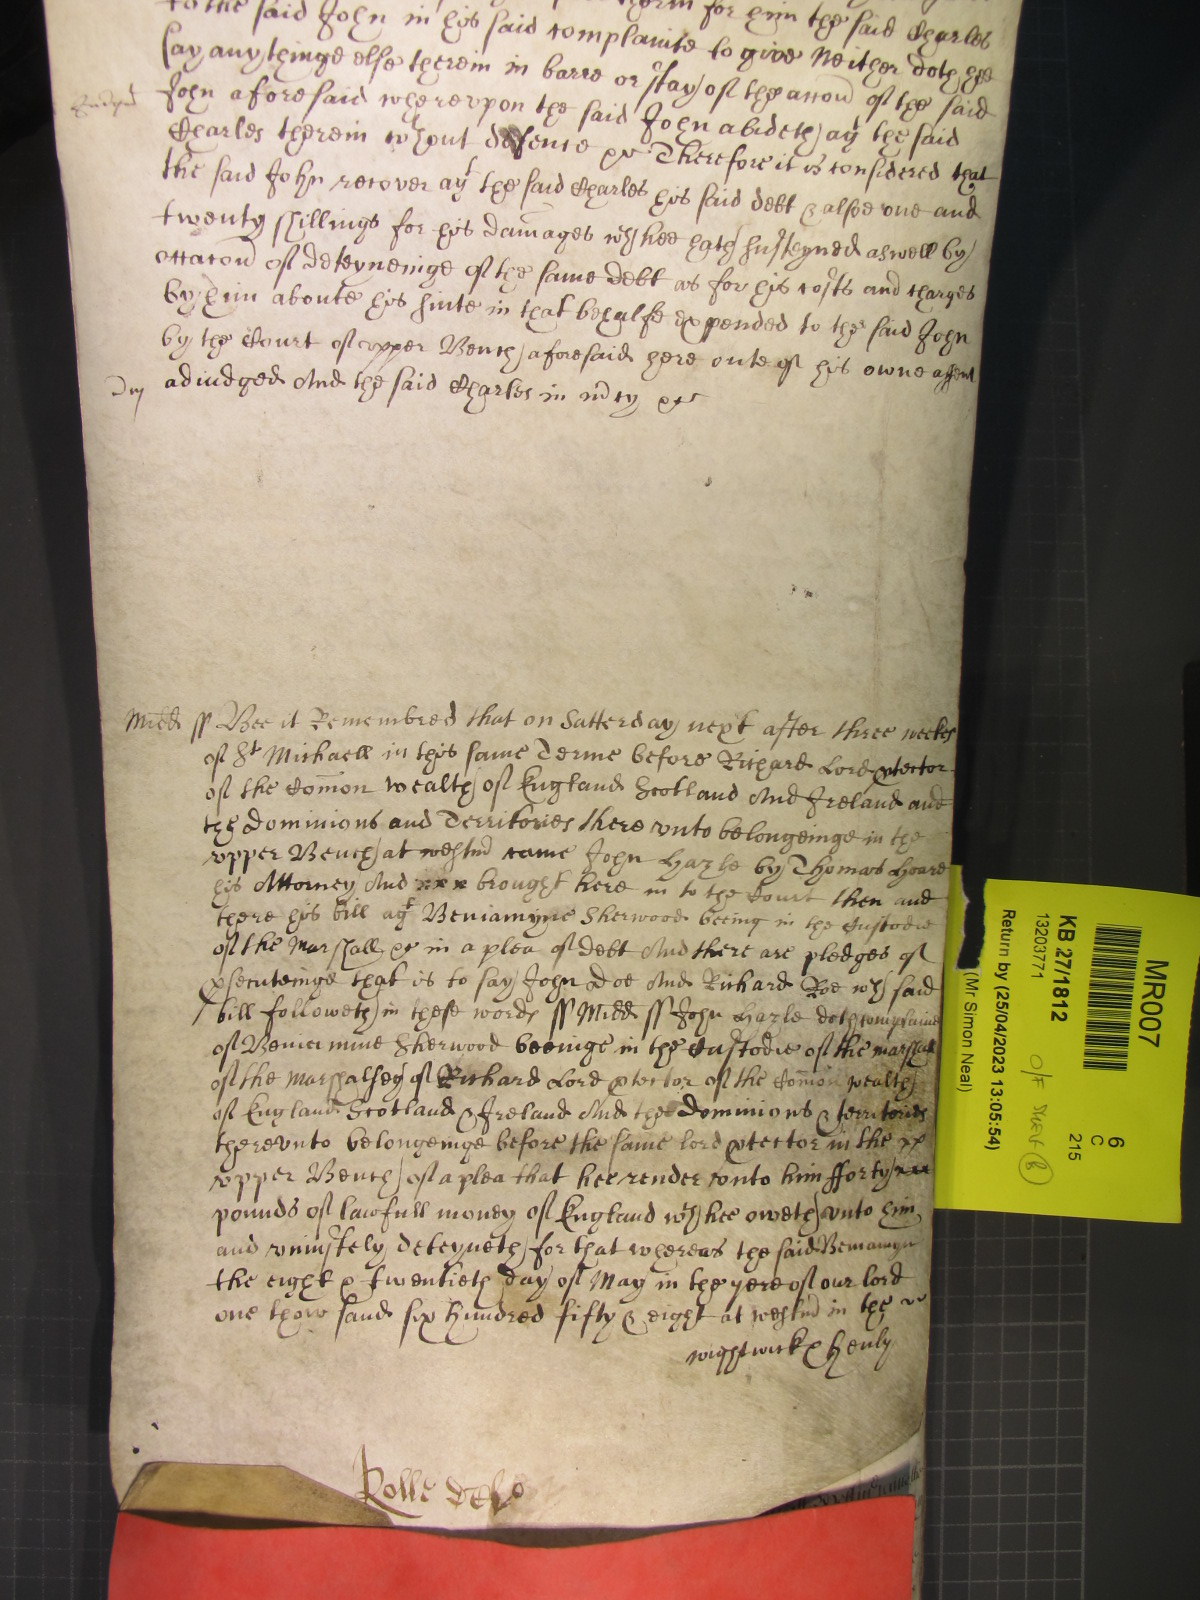 to the said John in his said complainte to give Neither doth hee
say any thinge else therein in barre or stay of the accon of the said
Judgmt John aforesaid wherevpon the said John abideth agt the said
Charles therein wthout defence &c Therefore it is considered that
the said John recover agt the said Charles his said debt & alsoe one and
twenty shillings for his damages wch hee hath susteyned aswell by
occacon of deteyneinge of the same debt as for his costs and charges
by him aboute his suite in that behalfe expended to the said John
by the Court of vpper Bench aforesaid here oute of his owne assent
adiudged And the said Charles in mcy &c
Midd ss Bee it Remembred that on Satterday next after three weekes
of St Michaell in this same Terme before Richard Lord ptector
of the Comon wealth of England Scotland And Ireland and
the Dominions and Territories there vnto belongeinge in the
vpper Bench at westmr came John Hazle by Thomas Hoare
his Attorney And xxx brought here in to the Court then and
there his bill agt Beniamyne Sherwood beeing in the Custodie
of the Marshall &c in a plea of debt And there are pledges of
psecuteinge that is to say John Doe And Richard Roe wch said
bill followeth in these words ss Midd ss John Hazle doth complaine
of Beniamine Sherwood beeinge in the Custodie of the marshall
of the Marshalsey of Richard Lord ptector of the Comon wealth
of England Scotland & Ireland And the Dominions & territories
therevnto belongeinge before the same lord ptector in the
vpper Bench of a plea that hee render vnto him fforty
pounds of lawfull money of England wch hee oweth vnto him
and vniustely deteyneth for that whereas the said Beniamyn
the eight & twentieth day of May in the yere of our lord
one thowsand six hundred fifty & eight at westmr in the
wightwick & Henly
Rolle
MR007
KB 27/1812
13203771
O/F Shelf B
6
C
215
Return by (25/04/2023 13:05:54)
(Mr Simon Neal)